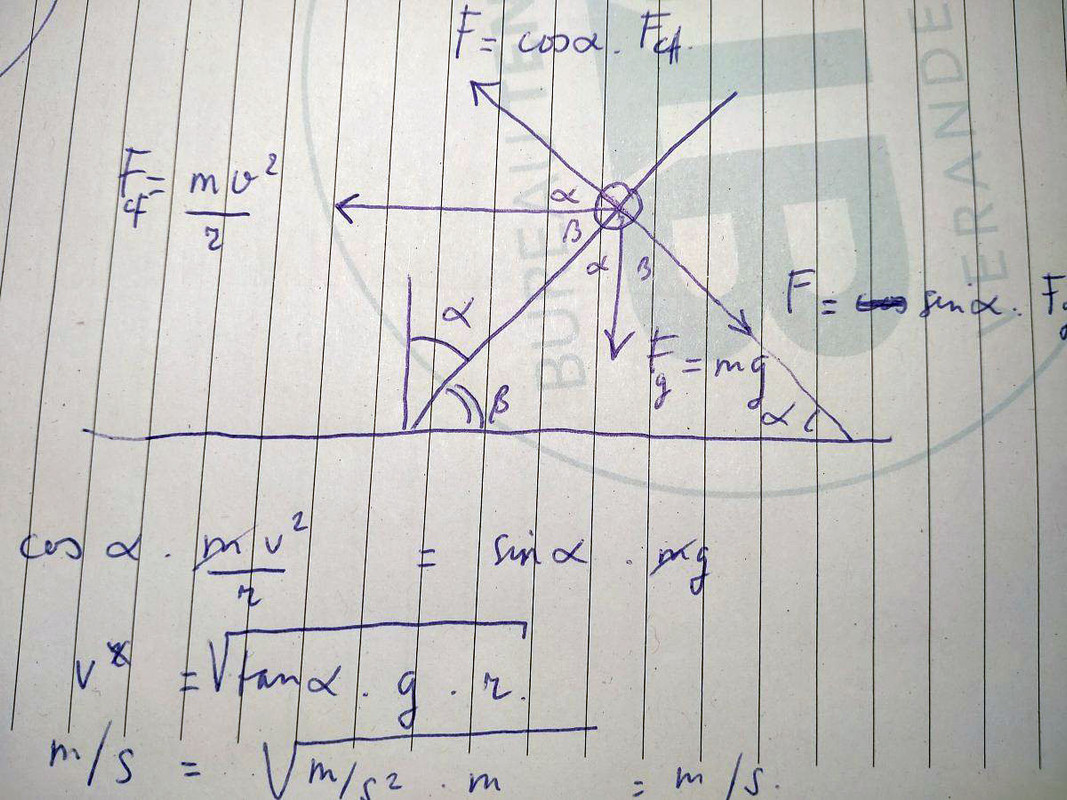 F = cosα . Fcf.
Fcf = mv²/r
α
β
α β
F = sinα . Fg
α
Fg = mg
α
β
cos α . mv²/r = sin α . mg
v = √tanα . g . r.
m/s = √m/s² . m = m/s.
VERANDE